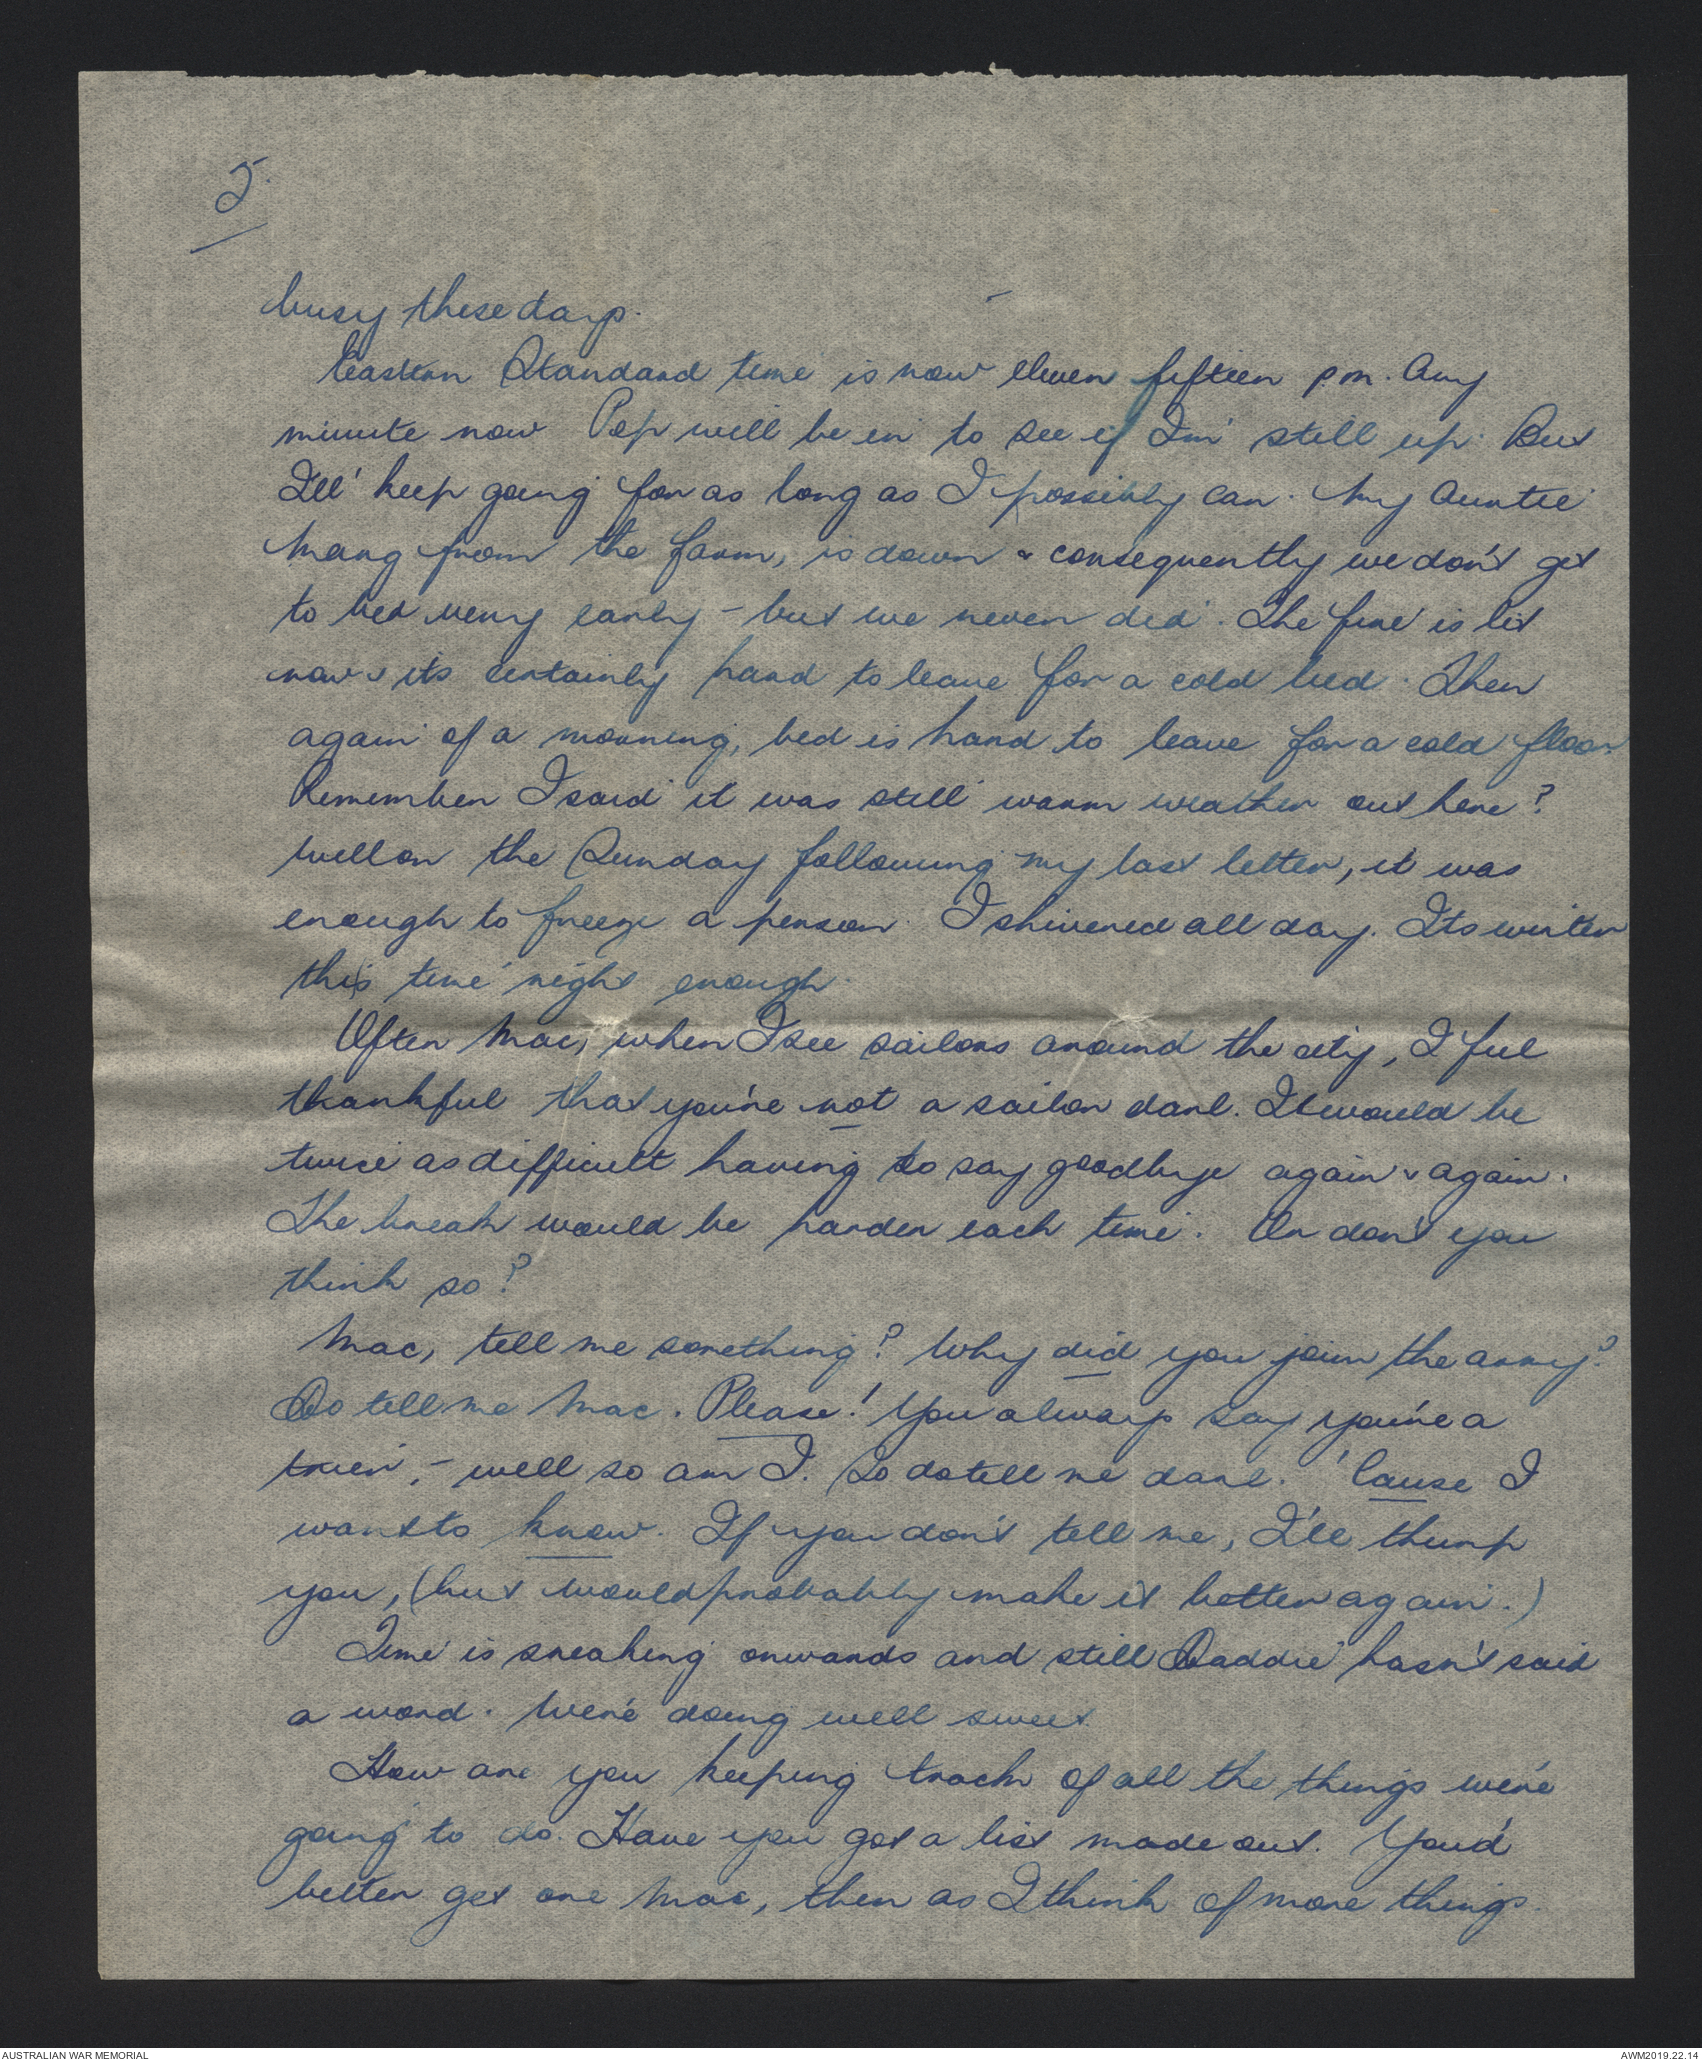 5.
busy these days.
Eastern Standard time is now eleven fifteen p.m. Any
minute now Pop will be in to see if I'm still up. But
I'll keep going for as long as I possibly can. My Auntie
Mary from the farm, is down & consequently we don't get
to bed very early - but we never did. The fire is lit
now & its certainly hard to leave for a cold bed. Then
again of a morning, bed is hard to leave for a cold floor.
Remember I said it was still warm weather out here?
Well on the Sunday following my last letter, it was
enough to freeze a person. I shivered all day. Its winter
this time right enough.
Often Mac, when I see sailors around the city, I feel
thankful that you're not a sailor darl. It would be
twice as difficult having to say goodbye again & again.
The break would be harder each time. Or don't you
think so?
Mac, tell me something? Why did you join the army?
Do tell me Mac. Please! You always say you're a
trier, - well so am I. So do tell me darl. 'Cause I
wants to know. If you don't tell me, I'll thump
you, (but would probably make it better again.)
Time is sneaking onwards and still Daddie hasn't said
a word. We're doing well sweet.
How are you keeping track of all the things we're
going to do. Have you got a list made out. You'd
better get one Mac, then as I think of more things
AUSTRALIAN WAR MEMORIAL
AWM2019.22.14